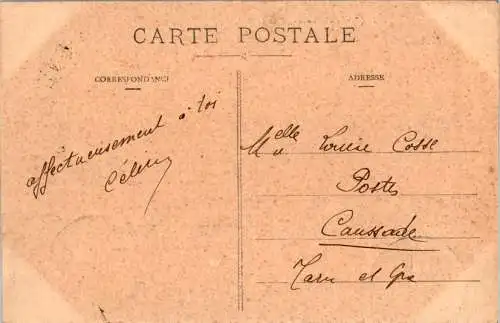 CARTE POSTALE
CORRESPONDANCE
ADRESSE
affectueusement à toi
Melle Louise Cosse
Poste
Caussade
Tarn et Gne